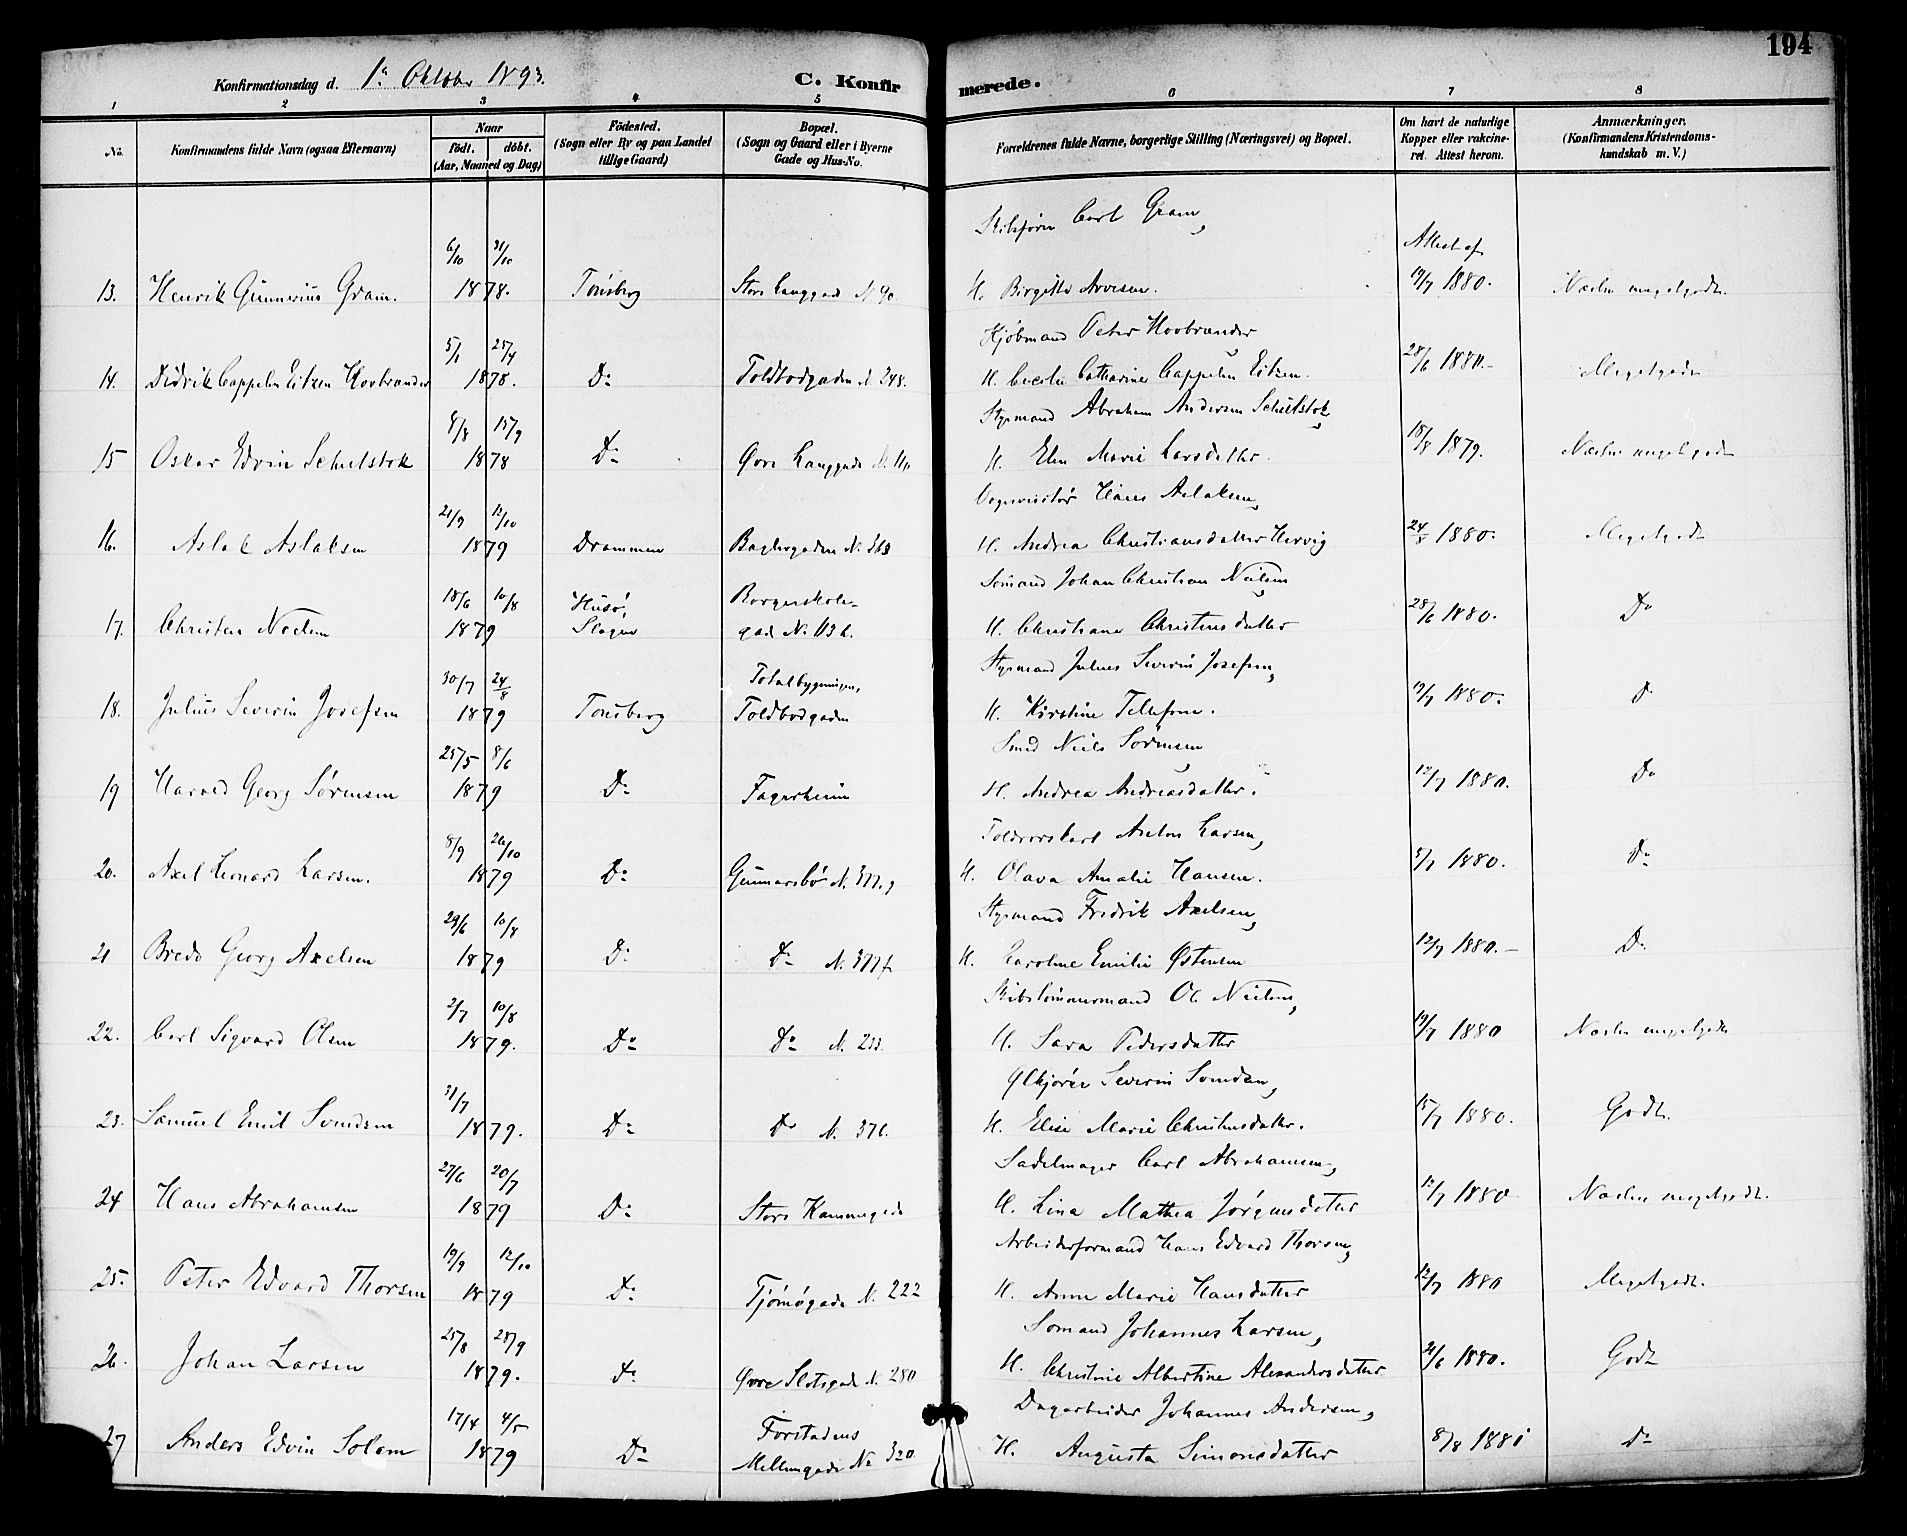 194
Konfirmationsdag d. 1ste Oktober 1893.
C. Konfirmerede.
1 2 3 4 5 6 7 8
No.
Konfirmandens fulde Navn (ogsaa Efternavn)
Naar
födt. döbt.
(Aar, Maaned og Dag)
Födested.
(Sogn eller By og paa Landet
tillige Gaard)
Bopæl.
(Sogn og Gaard eller i Byerne
Gade og Hus-No.
Forældrenes fulde Navne, borgerlige Stilling (Næringsvei) og Bopæl.
Om havt de naturlige
Kopper eller vakcine-
ret. Attest herom.
Anmærkninger.
(Konfirmandens Kristendoms-
kundskab m. V.)
Carl Gram,
6/10 31/10 Attest af
13. Henrik Gunnerius Gram. 1878. Tønsberg Store Langgade N. 90. H. Birgitte Arvesen. 19/7 1880. Næsten megetgodt.
Kjøbmand Peter Hovbrender
5/1 25/4
14. Didrik Cappelen Eitzen Hovbrender 1878. Do Toldbodgaden N. 248. H. Cecilie Catharine Cappelen Eitzen. 28/6 1880. Megetgodt
Styrmand Abraham Andersen Schulstok,
8/8 15/9
15 Oskar Edvin Schulstok 1878 Do Øvre Langgade N. 110 H. Elen Marie Larsdatter. 18/8 1879. Næsten megetgodt
Hans Aslaksen,
21/9 12/10
16. Aslak Aslaksen 1879 Drammen Baglergaden N. 363 H. Andrea Christiansdatter Hervig 24/8 1880. Megetgodt
Sømand Johan Christian Nielsen,
18/6 10/8 Husø, Borgerskole-
17. Christen Nielsen 1879 Slagen gad. N. 113 b. H. Christiane Christensdatter 28/6 1880. Do
Styrmand Julius Severin Josefsen,
30/7 24/8 Totalbygningen,
18. Julius Severin Josefsen 1879 Tønsberg Toldbodgaden H. Kirstine Tellefsen. 19/7 1880. Do
Smed Niels Sørensen,
25/5 8/6
19 Harald Georg Sørensen 1879 Do Fagerheim H. Andrea Andreasdatter. 12/7 1880. Do
Toldrorskarl Anton Larsen,
8/9 26/10
20. Axel Leonard Larsen. 1879 Do Gunnarsbø N. 377. g H. Olava Amalie Hansen. 5/7 1880. Do
Styrmand Fredrik Axelsen,
29/6 10/8
21 Bredo Georg Axelsen 1879 Do Do N. 377 f H. Caroline Emilie Østensen 12/7 1880. Do
Skibstømmermand Ol. Nielsen,
2/7 10/8
22. Carl Sigvard Olsen 1879. Do Do N. 233. H. Sara Pedersdatter 19/7 1880 Næsten megetgodt
Severin Svendsen,
31/7
23. Samuel Emil Svendsen 1879. Do Do N. 376. H. Elise Marie Christensdatter. 15/7 1880. Godt.
Sadelmager Carl Abrahamsen,
27/6 20/7
24 Hans Abrahamsen 1879 Do Store Kammegade H. Lina Mathea Jørgensdatter 12/7 1880 Næsten megetgodt.
Arbeiderformand Hans Edvard Thorsen,
19/9 12/10
25. Peter Edvard Thorsen 1879 Do Tjømøgade N. 222 H. Anne Marie Hansdatter 12/7 1880 Megetgodt.
Sømand Johannes Larsen,
25/8 28/9
26. Johan Larsen 1879. Do Øvre Slotsgade N. 280 H. Christine Albertine Alexandersdatter 21/6 1880. Godt
Dagarbeider Johannes Andersen,
17/4 4/5 Forstadens
27 Anders Edvin Solem 1879 Do Møllengade No 320. H. Augusta Simonsdatter 8/8 1881 Do